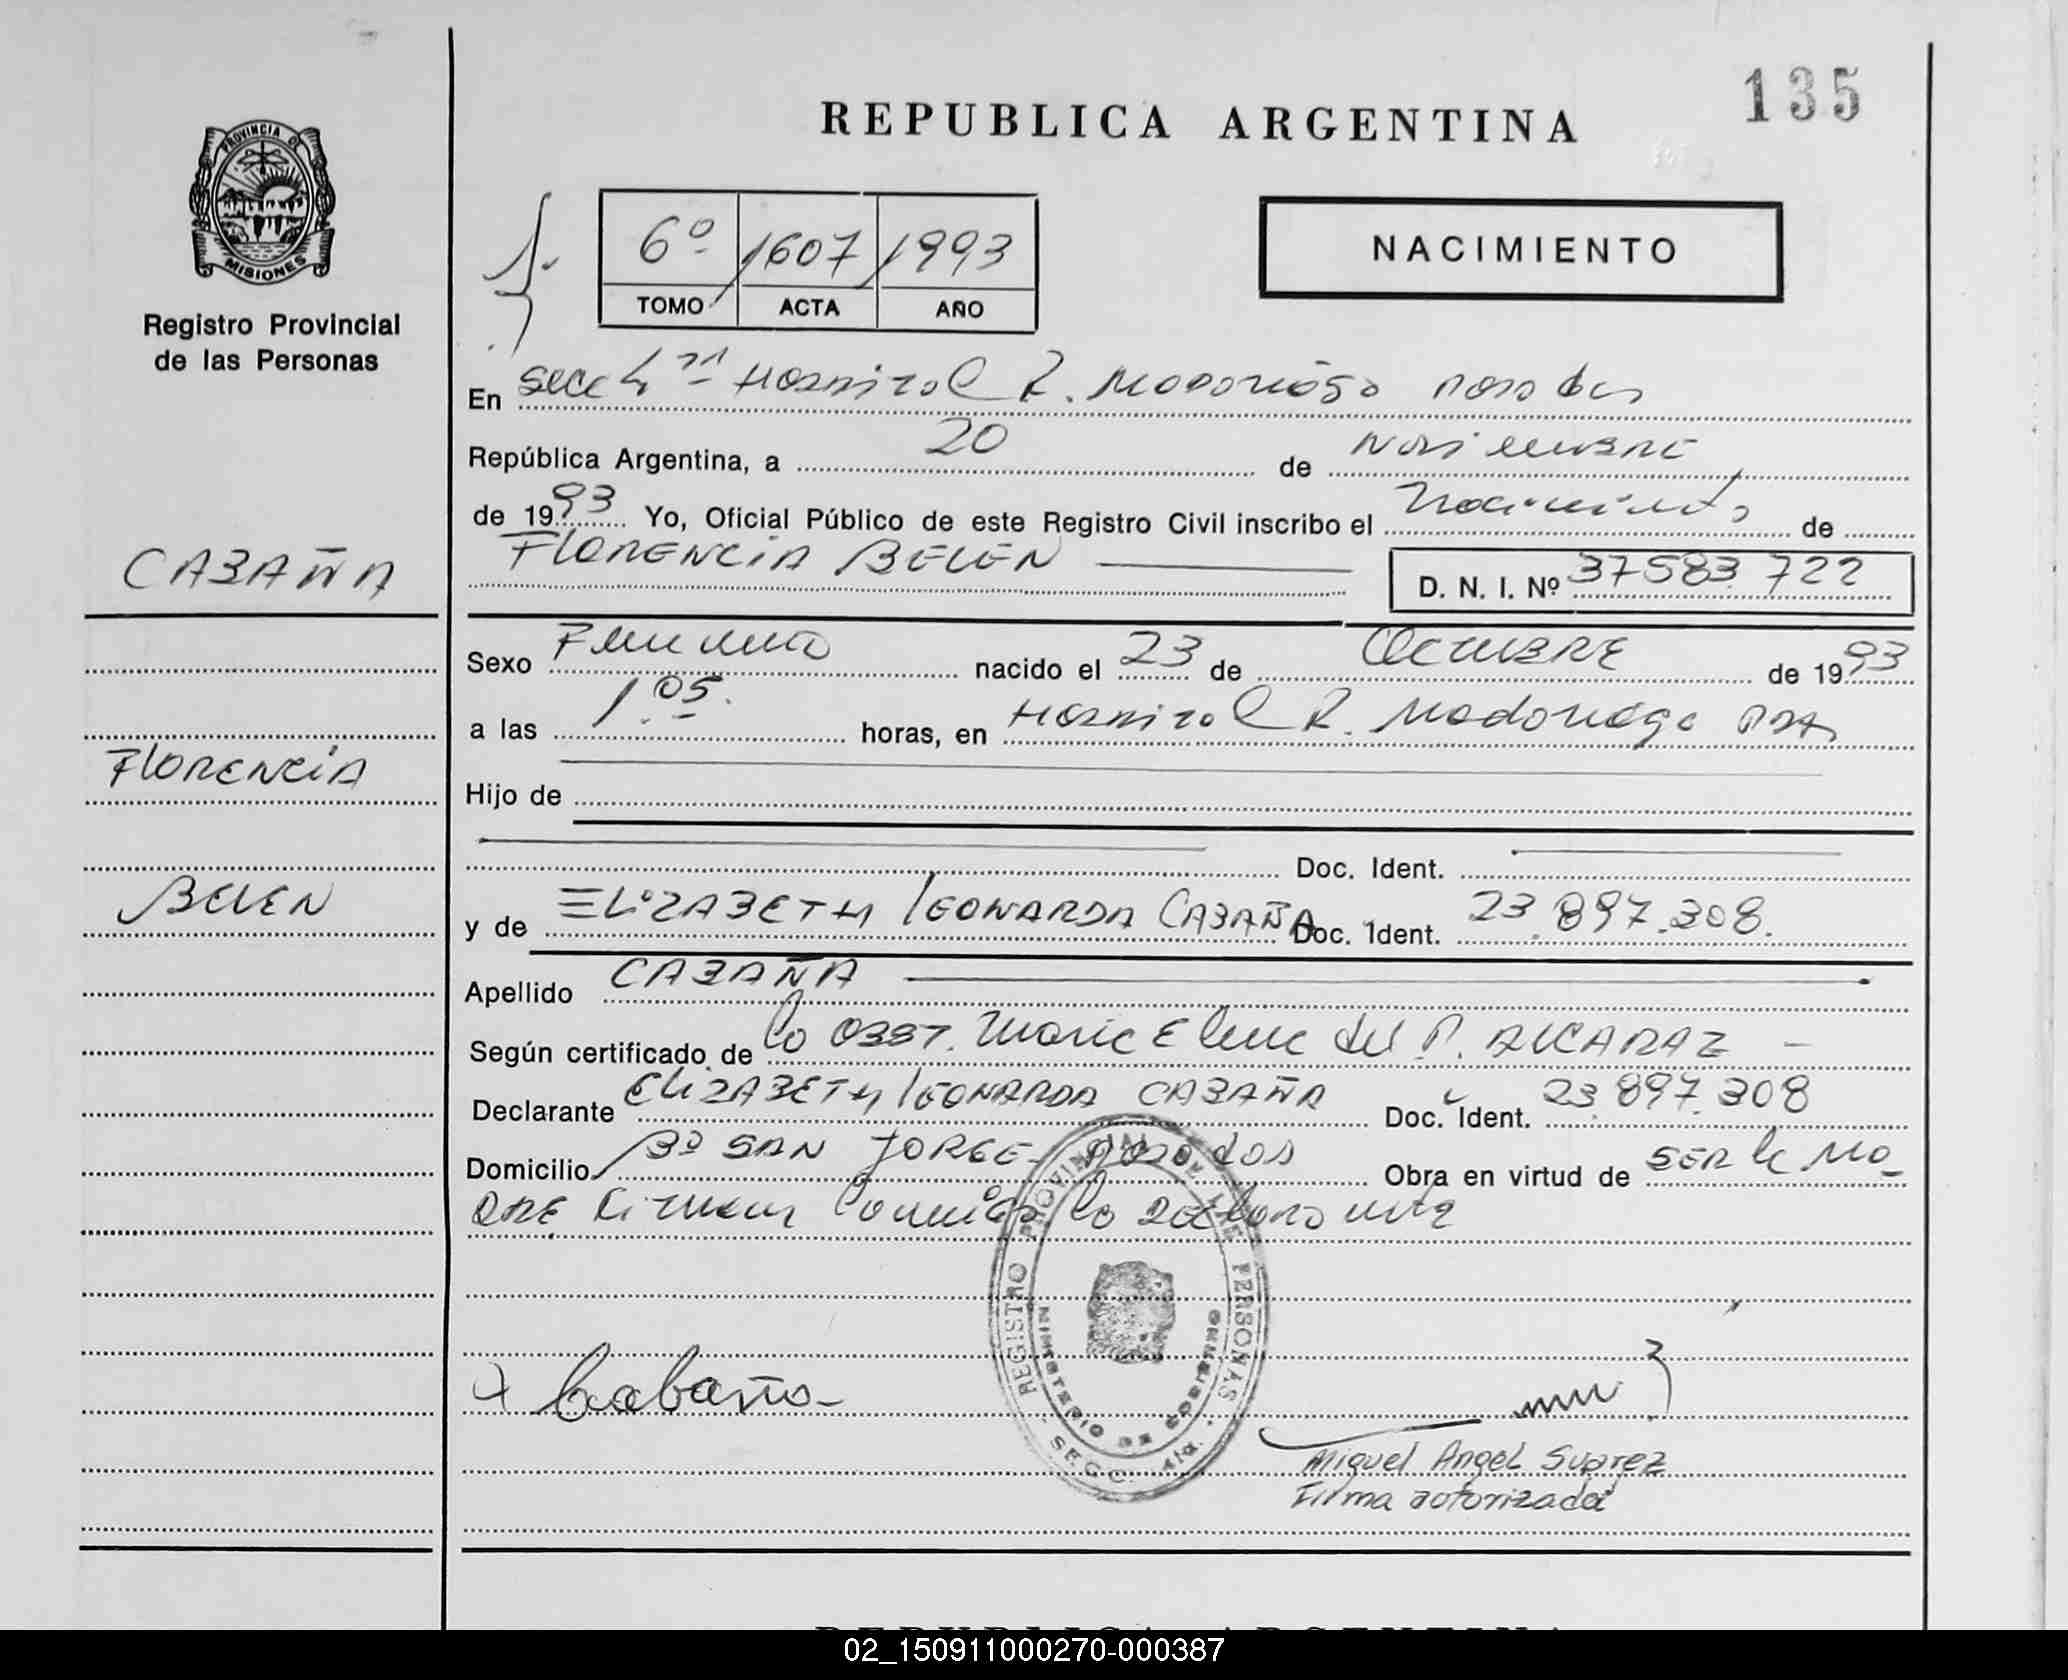 135
REPUBLICA ARGENTINA
PROVINCIA DE
MISIONES
Registro Provincial
de las Personas
6º 1607 1993
TOMO ACTA AÑO
NACIMIENTO
En Secc 4ta Hospital R. Madariaga Posadas
República Argentina, a 20 de Noviembre
de 1993 Yo, Oficial Público de este Registro Civil inscribo el Nacimiento de
FLORENCIA BELEN
D. N. I. Nº 37583.722
CABAÑA
FLORENCIA
BELEN
Sexo Femenino nacido el 23 de Octubre de 1993
a las 1.05. horas, en Hospital R. Madariaga Pdas
Hijo de
Doc. Ident.
y de ELIZABETH LEONARDA CABAÑA Doc. Ident. 23.897.308.
Apellido CABAÑA
Según certificado de la Obst. Maria Elena del P. ALCARAZ
Declarante ELIZABETH LEONARDA CABAÑA Doc. Ident. 23.897.308
Domicilio Bº SAN JORGE - Posadas Obra en virtud de SER la Ma-
dre la declarante
REGISTRO PROVINCIAL DE LAS PERSONAS
MINISTERIO DE GOBIERNO
SECC. 4ta.
Cabaña
Miguel Angel Suarez
Firma autorizada
REPUBLICA ARGENTINA
02_150911000270-000387